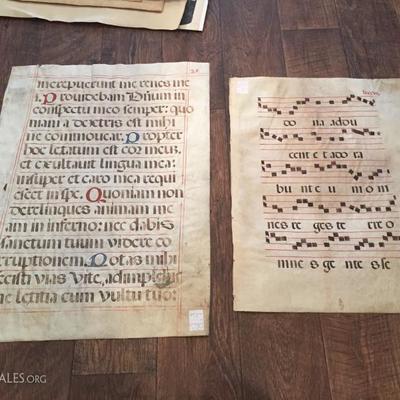 merepuerunt me renes me
i. Providebam Dñum in
conspectu meo semper: quo
niam a dextris est mihi
ne commovear. Propter
hoc letatum est cor meus,
et exultavit lingua mea:
insuper et caro mea requi
escet in spe. Quoniam non
derelinques animam me
am in inferno: nec dabis
sanctum tuum videre co
rruptionem. Notas mihi
fecisti vias Vite, adimplebis
me letitia cum vultu tuo:
do na adou
cent et ado ra
bu nt e u m om
nes re ges te rr e o
mne s ge nte s se
ALES.ORG